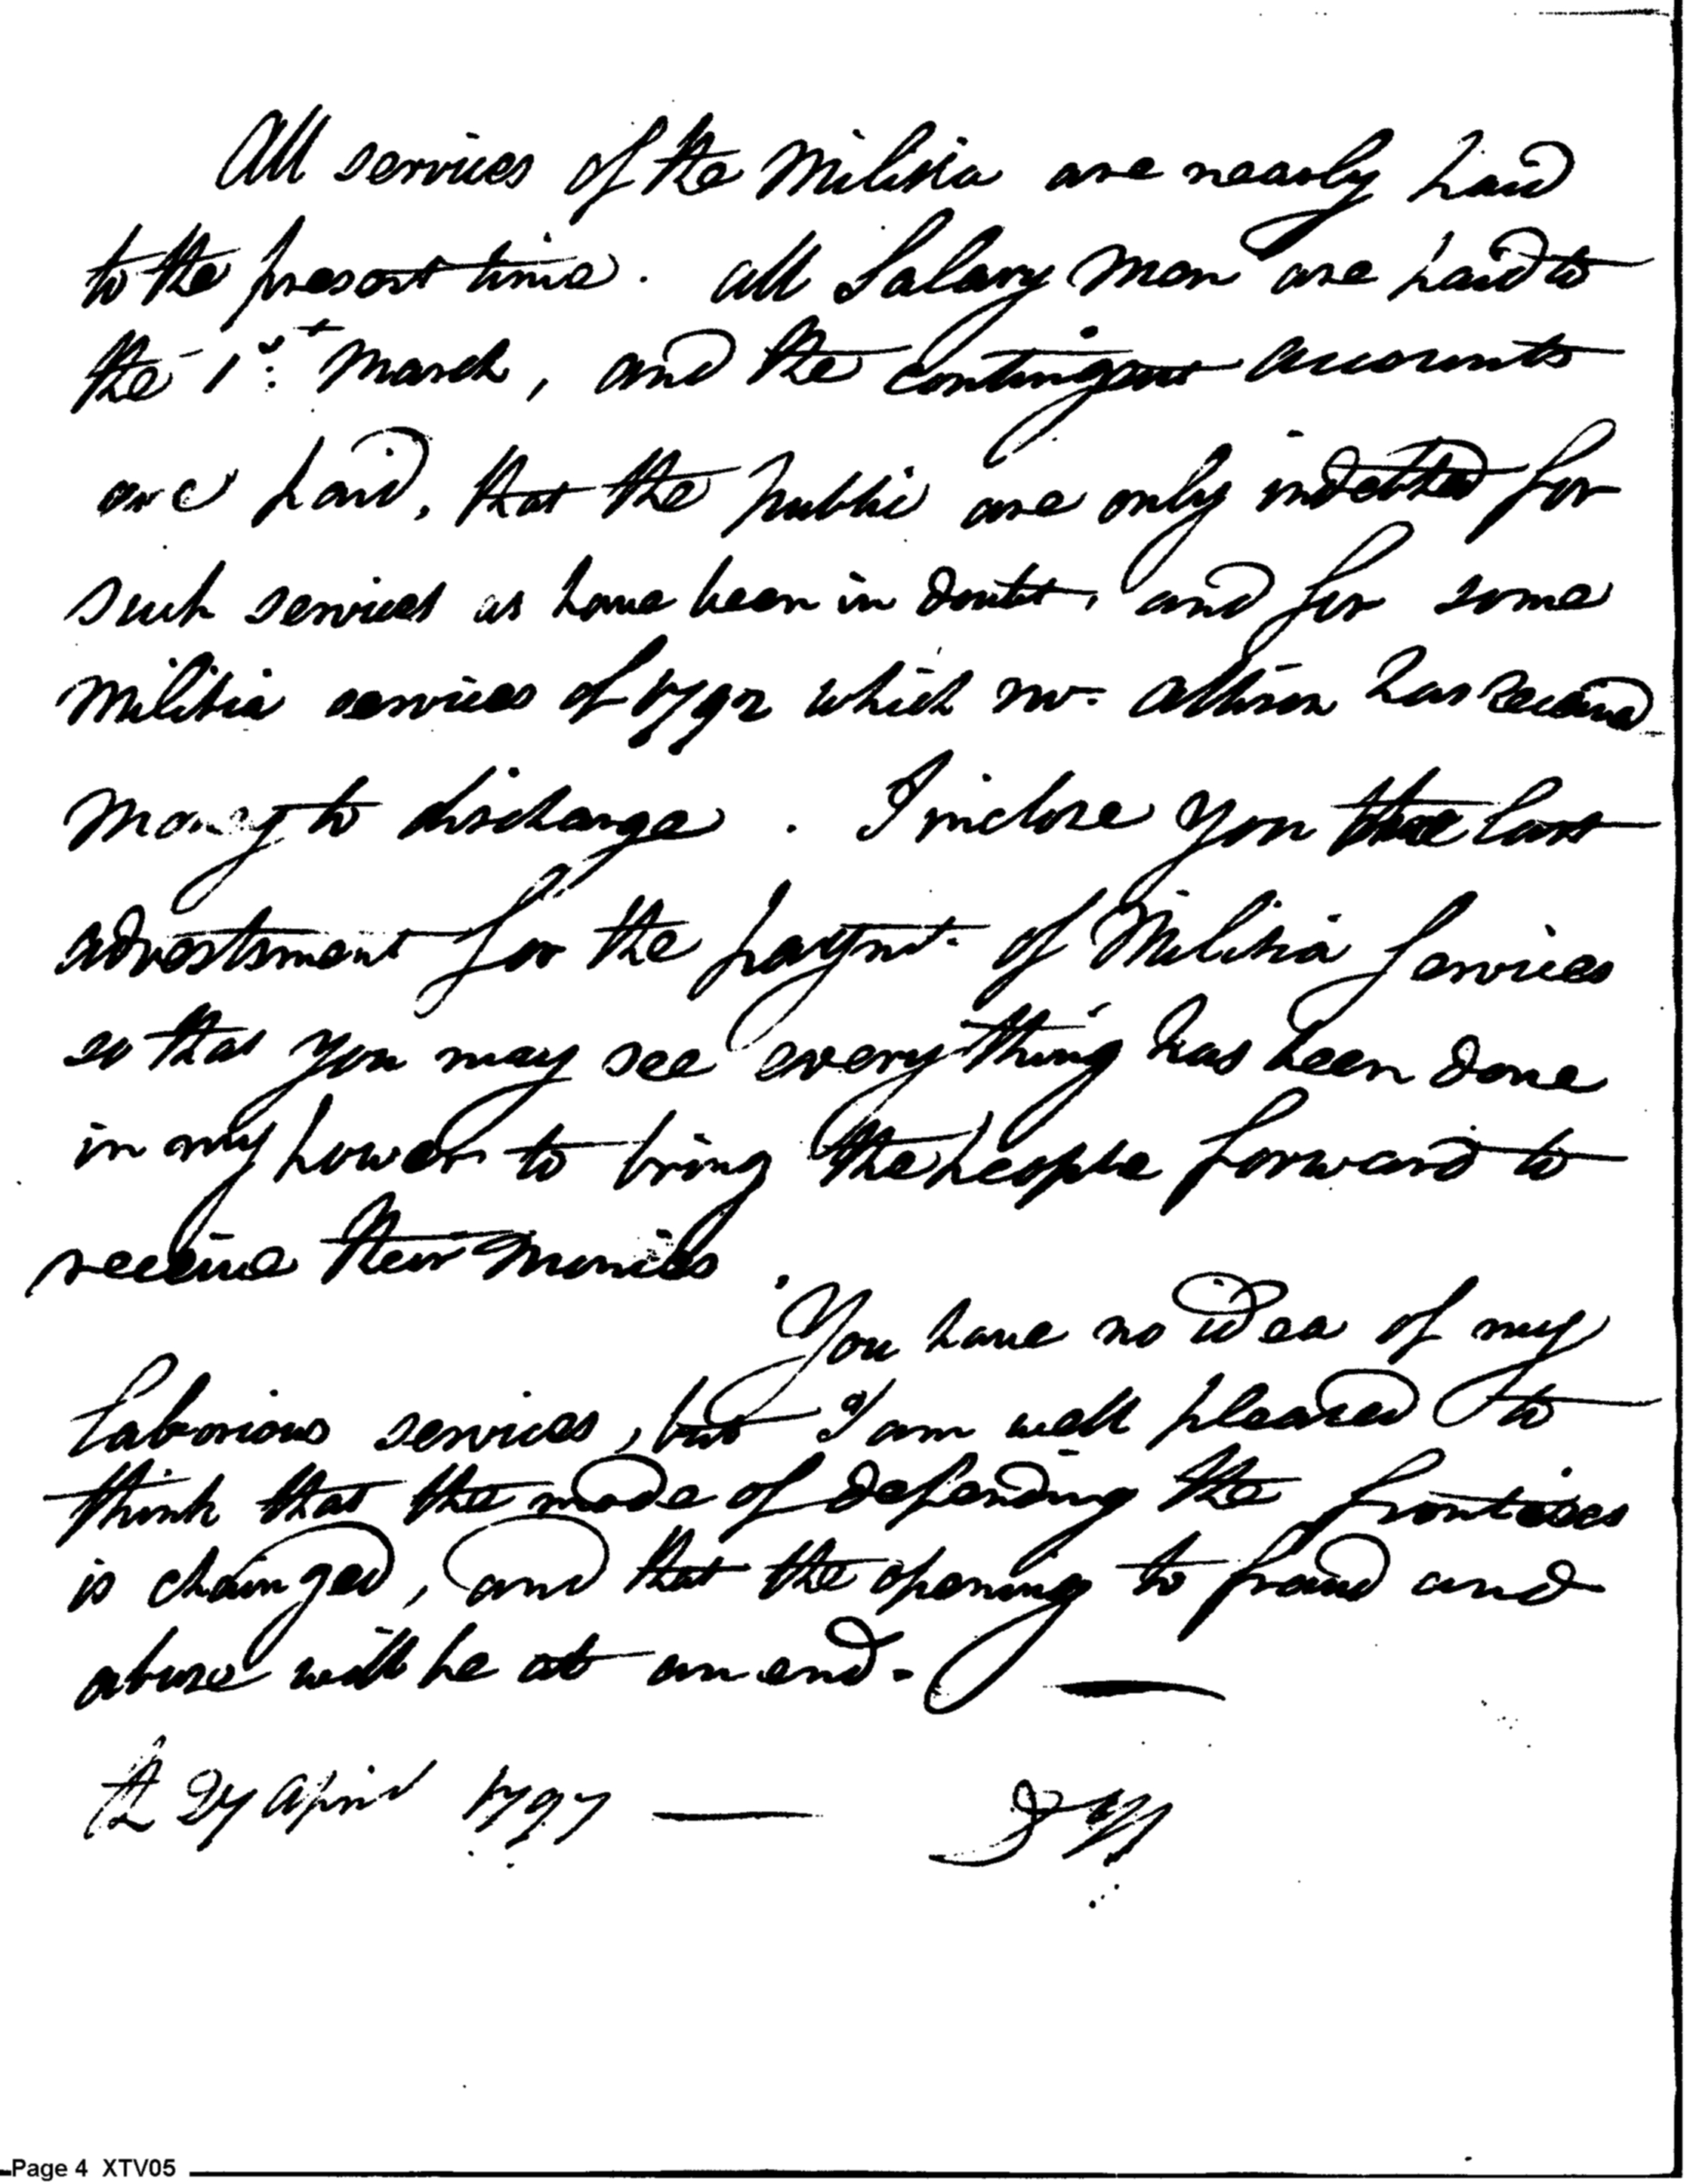 All services of the Militia are nearly paid
to the present time. All Salary Men are paid to
the 1st March, and the Contingent accounts
are paid, that the public are only indebted for
such services as have been in doubt, and for some
Militia services of 1792 which Mr. Allison has received
Money to discharge. I inclose you the last
advertisment for the paymt. of Militia Services
so that you may see every thing has been done
in my power to bring the people forward to
receive their Monies.
You have no idea of my
laborious services, but I am well pleased to
think that the mode of defending the frontiers
is changed, and that the opening to fraud and
abuse will be at an end.
27 April 1797
Page 4 XTV05